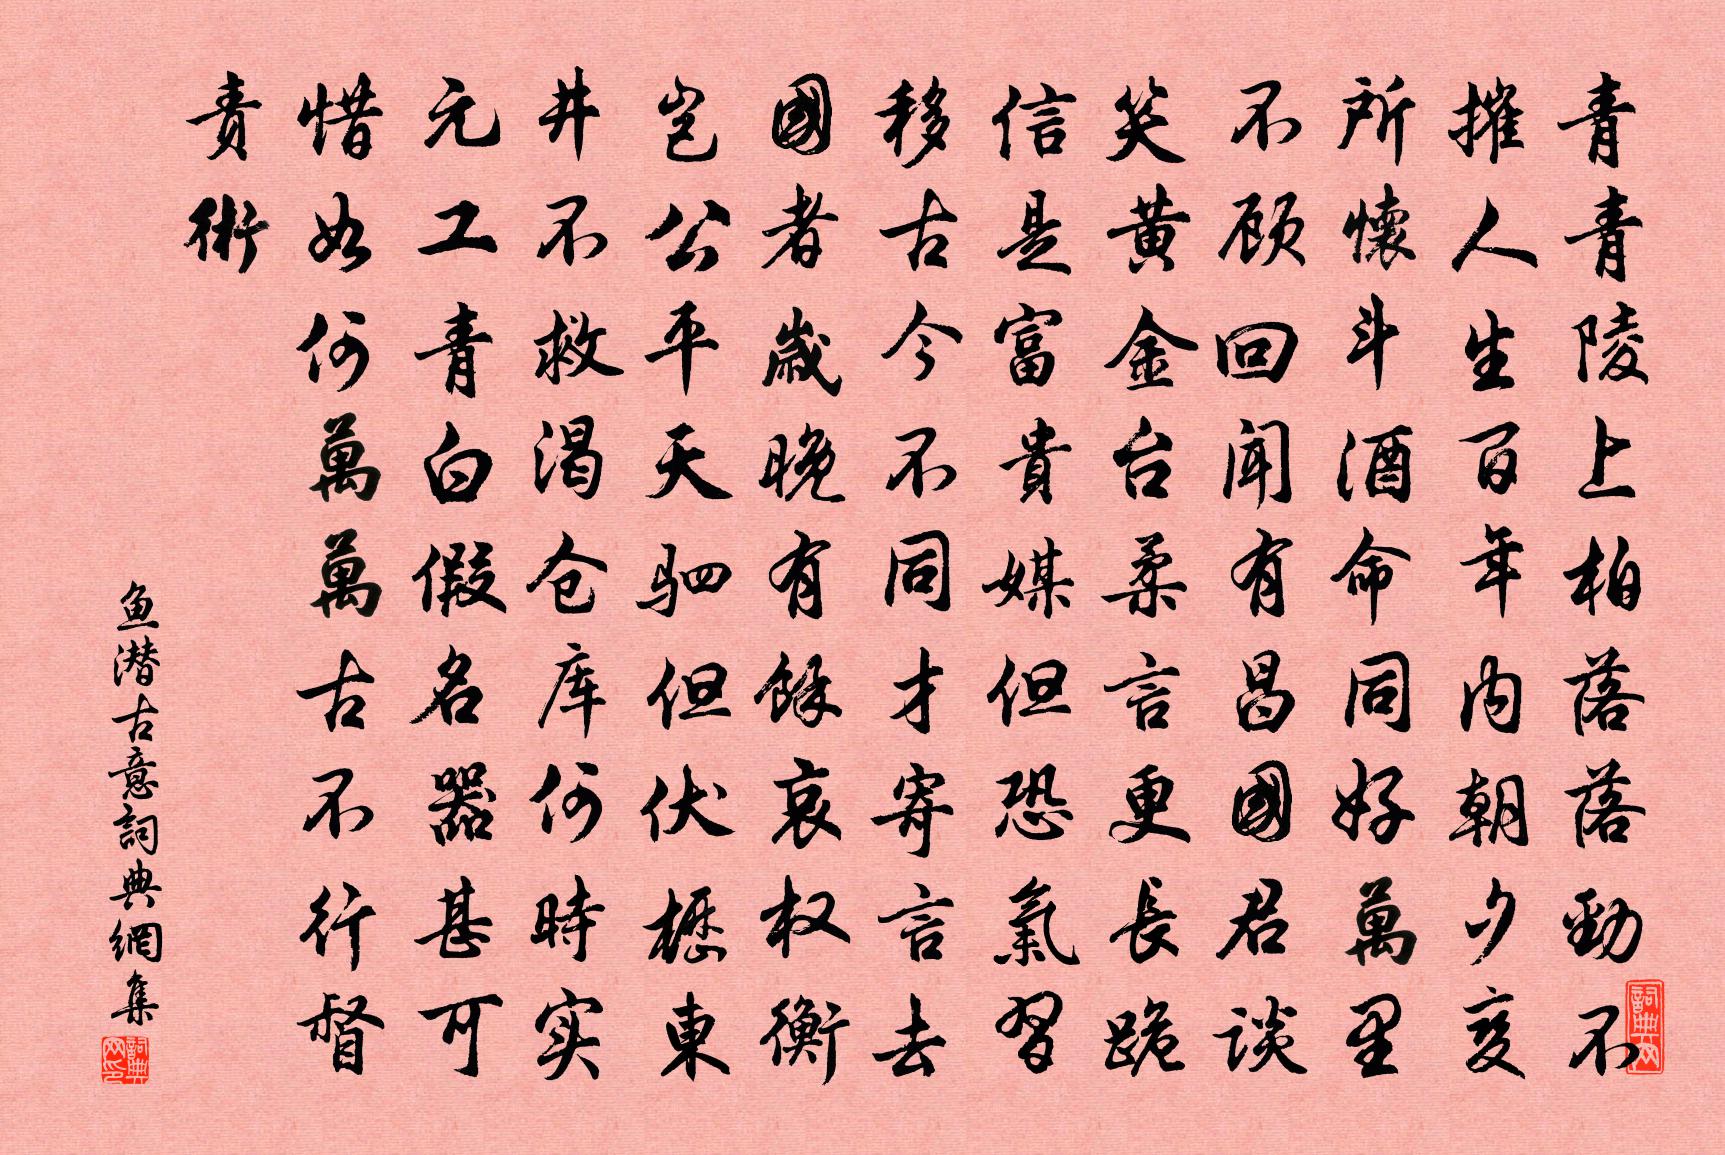 青青陵上柏落落勁不
摧人生百年内朝夕变
所懷斗酒命同好萬里
不顾回闻有昌國君谈
笑黄金台柔言更長跪
信是富貴媒但恐氣習
移古今不同才寄言去
國者歲晚有餘哀权衡
岂公平天驷但伏櫪東
井不救渴仓库何時实
元工青白假名器甚可
惜如何萬萬古不行督
責術
鱼潜古意詞典網集
詞典网
詞典网印